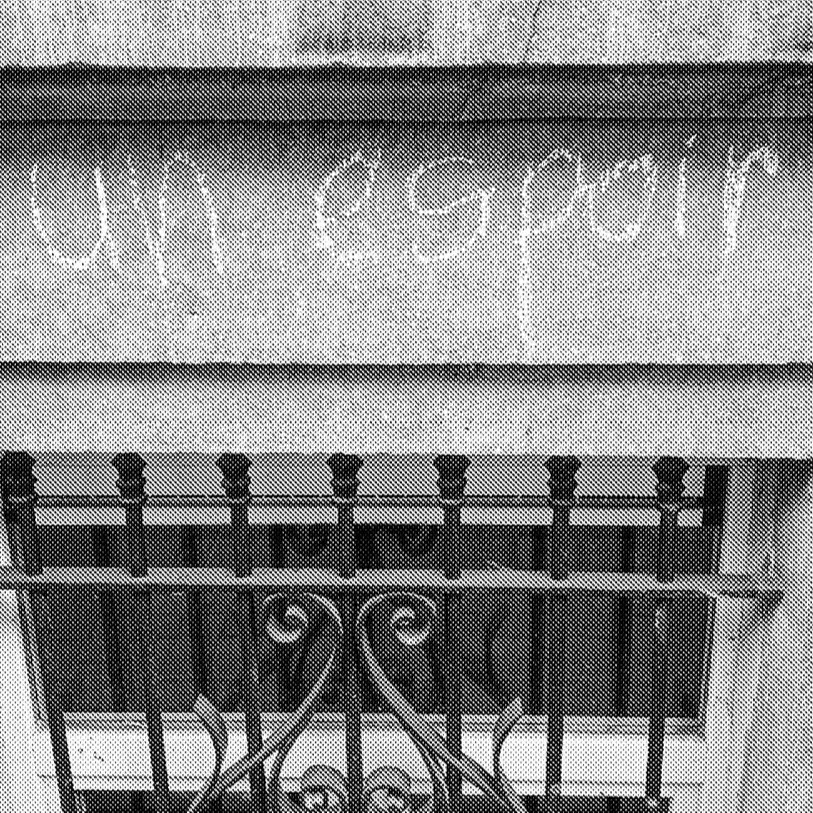 un espoir